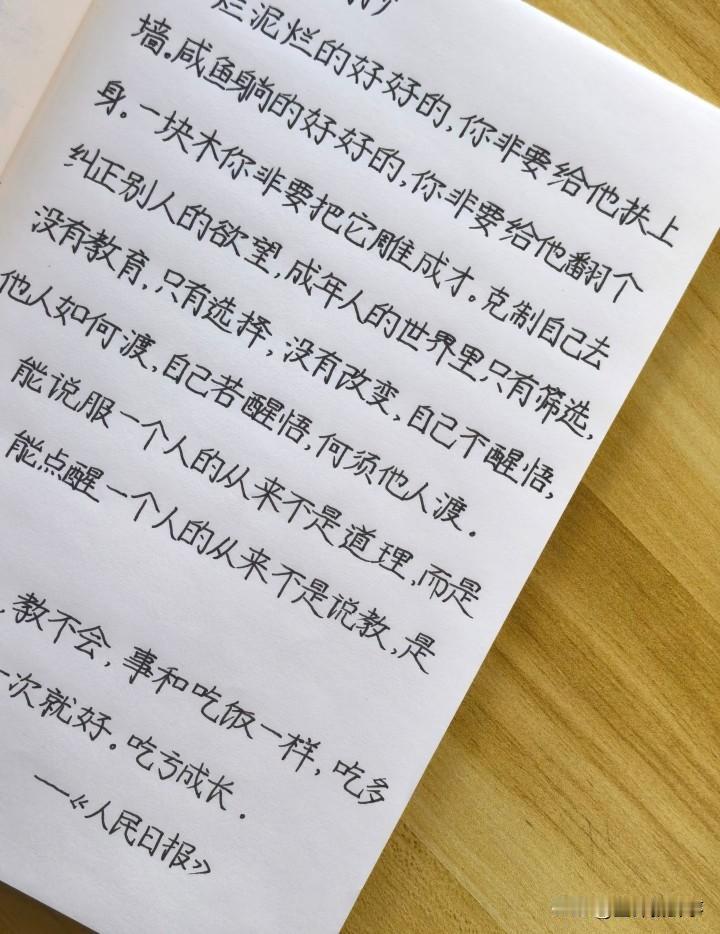 烂泥烂的好好的,你非要给他扶上
墙。咸鱼躺的好好的,你非要给他翻个
身。一块木你非要把它雕成才。克制自己去
纠正别人的欲望,成年人的世界里只有筛选,
没有教育,只有选择,没有改变,自己不醒悟,
他人如何渡,自己若醒悟,何须他人渡。
能说服一个人的从来不是道理,而是
能点醒一个人的从来不是说教,是
教不会,事和吃饭一样,吃多
一次就好。吃亏成长.
—《人民日报》